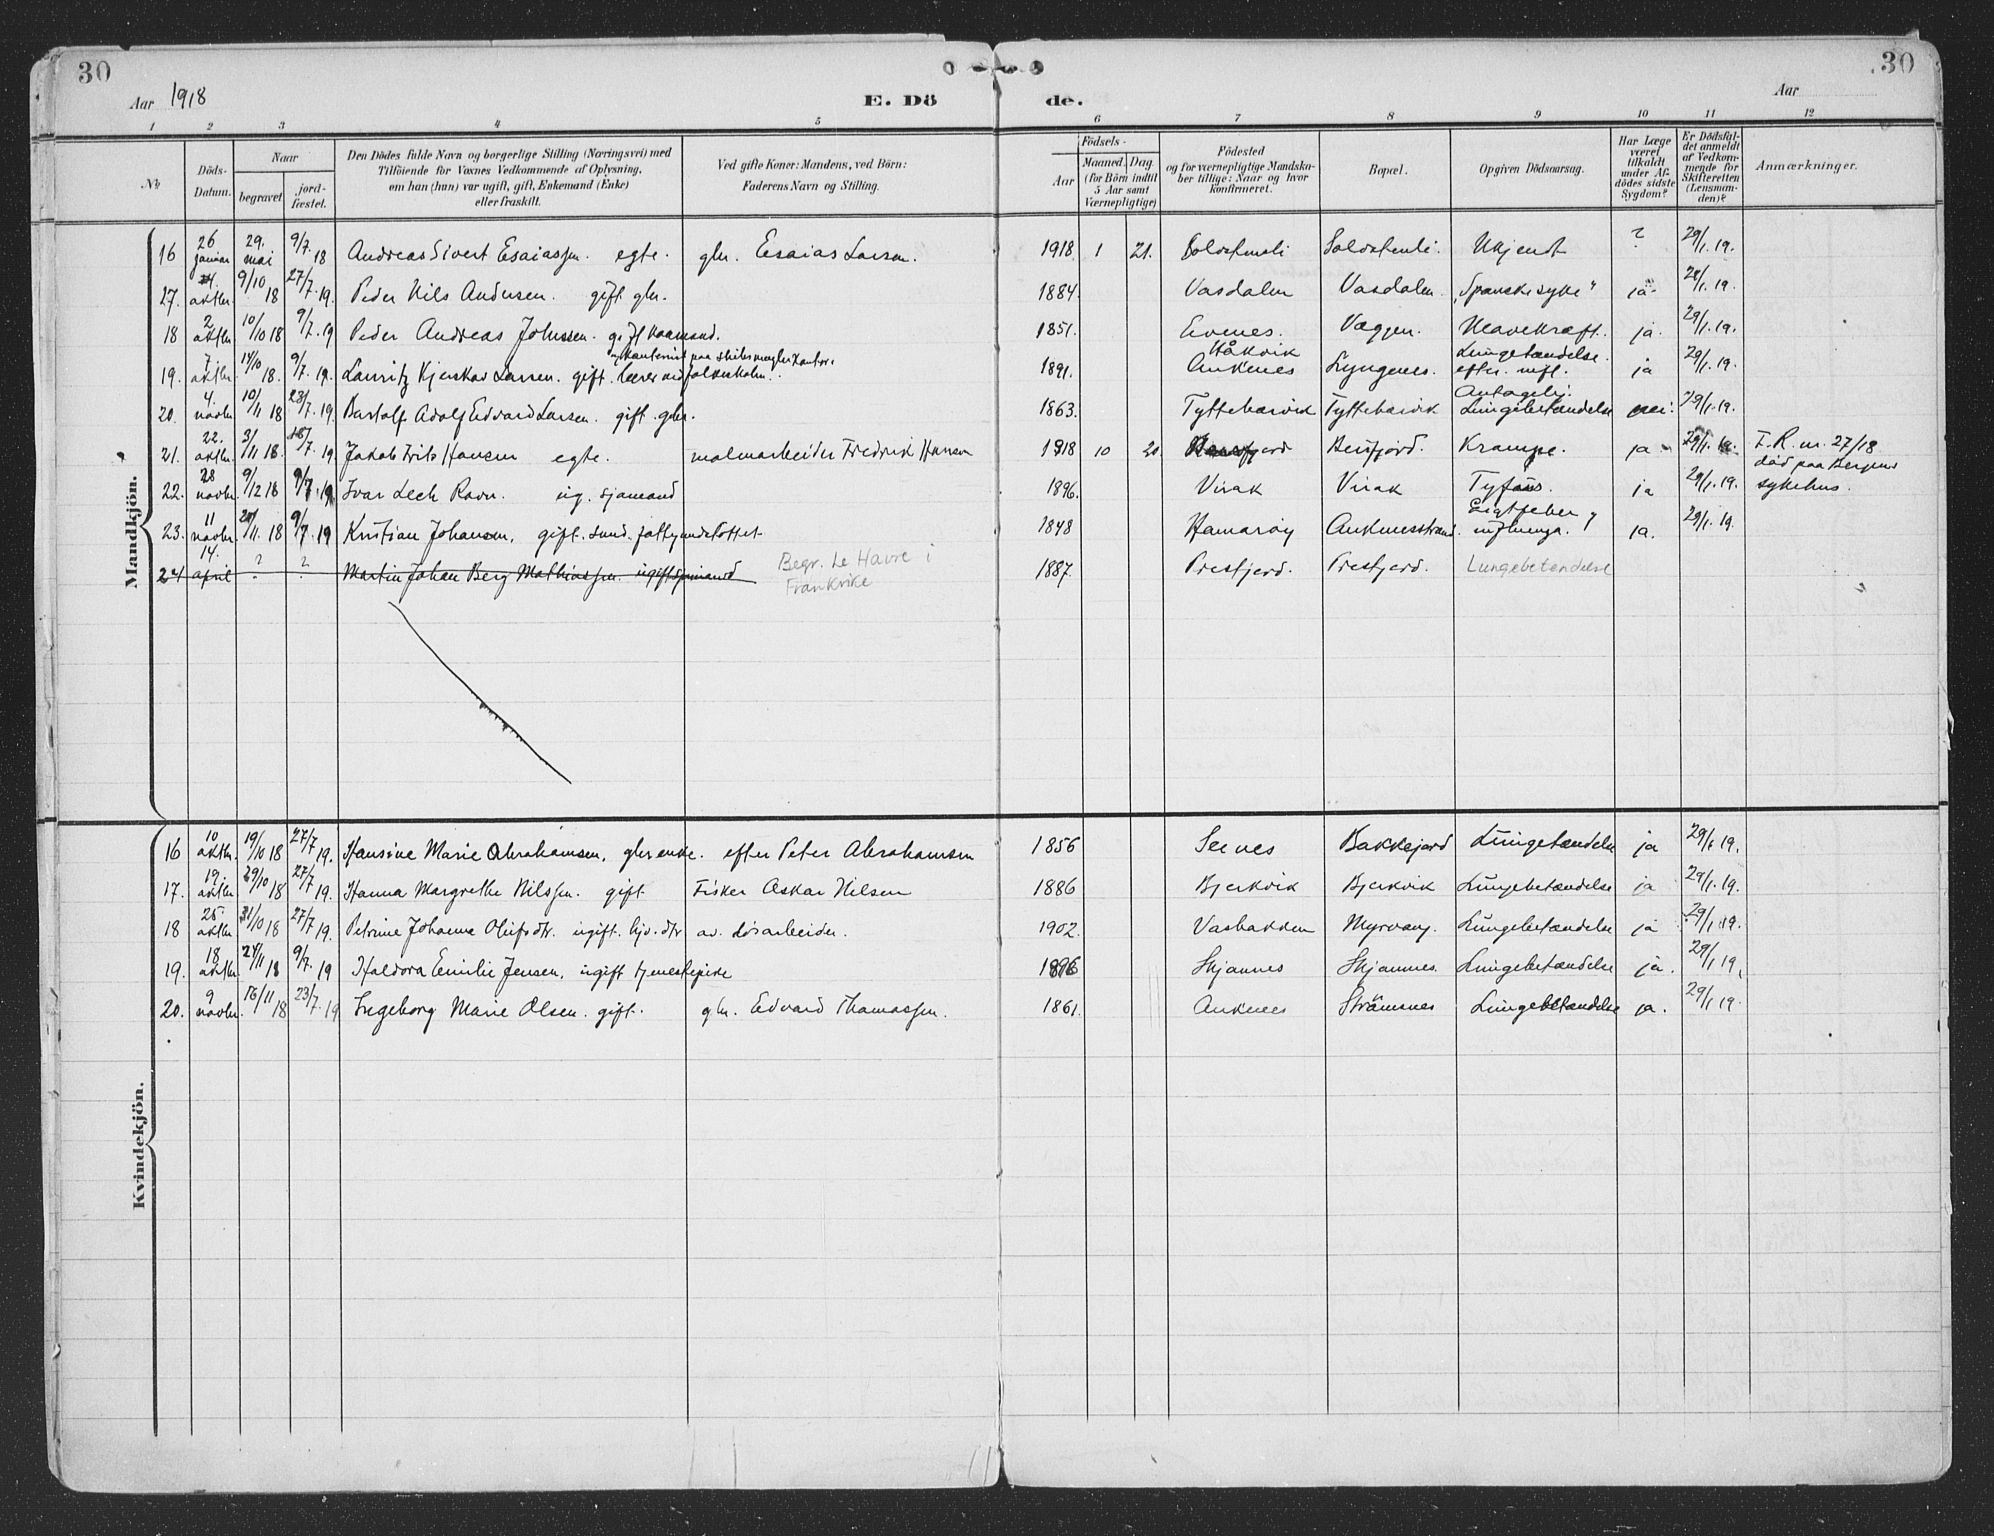 30
Aar 1918
E. Dö
de.
Aar
30
1 2 3 4 5 6 7 8 9 10 11 12
No
Döds-Datum.
Naar
begravet
jord-fæstet.
Den Dödes fulde Navn og borgerlige Stilling (Næringsvei) med
Tilföiende for Voxnes Vedkommende af Oplysning,
om han (hun) var ugift, gift, Enkemand (Enke)
eller fraskilt.
Ved gifte Koner: Mandens, ved Börn:
Faderens Navn og Stilling.
Födsels-
Aar
Maaned. Dag
(for Börn indtil
5 Aar samt
Værnepligtige)
Födested
og for værnepligtige Mandska-
ber tillige: Naar og hvor
konfirmeret.
Bopæl.
Opgiven Dödsaarsag.
Har Læge
været
tilkaldt
under Af-
dödes sidste
Sygdom?
Er Dödsfal-
det anmeldt
af Vedkom-
mende for
Skifteretten
(Lensman-
den)?
Anmærkninger.
Mandkjön.
16 26 januar 29. mai 9/7 18 Andreas Sivert Esaiassen. egte. gbr. Esaias Larsen. 1918 1 21. Soldatenli. Ukjendt ? 29/1.19.
27. oktbr. 9/10 18 27/7.19. Peder Nils Andersen. gift gbr. 1884. Vasdalen Vasdalen. "Spanske syke" ja. 29/1.19.
18 2. oktbr. 10/10 18 9/7.19 Peder Andreas Johnsen. gift kaarmand. 1851. Evenes. Væggen. Mavekræft. ja. 29/1.19.
19. 7. oktbr. 14/10 18. 9/7.19. Lauritz Kjerskov Larsen. gift. lærer ved folkeskolen. og kontorist paa skibsmæglerkontor. 1891. Håkvik Ankenes Lyngenes. Lungebetændelse efter infl. ja 29/1.19.
20. 4. novbr. 10/11 18 23/7.19. Bastolf Adolf Edvard Larsen. gift. gbr. 1863. Tyttebærvik Tyttebærvik Antagelig Lungebetændelse nei. 29/1.19.
21. 22. oktbr. 3/11 18. 7.19 Jakob Frits Hansen egte. malmarbeider Fredrik Hansen 1918 10 20 Beisfjord Beisfjord. Krampe. ja 29/1.19. F. R. nr. 27/18
22. 28 novbr. 9/12 18 9/7.19 Ivar Lech Ravn. ug. sjømand 1896. Virak Virak Tyfus. ja 29/1.19. død paa Bergens sykehus.
23. 11 novbr. /11 18 9/7.19 Kristian Johansen. gift. fattigunderstøttet 1848 Hamarøy Ankenesstrand. Gigtfeber influenza. ja. 29/1.19.
24 14. april ? ? Martin Johan Berg Mathiassen ugift sjømand Begr. Le Havre i Frankrike 1887. Presfjord. Presfjord. Lungebetendelse
Kvindekjön.
16 10 oktbr. 19/10 18 27/7.19. Hansine Marie Abrahamsen, gbr. enke. efter Peter Abrahamsen 1856 Seines Bakkejord Lungebetændelse ja 29/1 19.
17. 19. oktbr. 29/10 18 27/7.19. Hanna Margrethe Nilssen. gift Fisker Oskar Nilsen 1886 Bjerkvik Bjerkvik Lungebetændelse ja 29/1.19.
18 25. oktbr. 31/10 18 27/7 19. Petrine Johanne Olufsdtr. ugift. hjv. dtr av. løsarbeider. 1902. Vasbakken Myrvang. Lungebetændelse ja 29/1.19.
19. 18 oktbr. 24/11 18 9/7.19 Haldora Emilie Jensen, ugift tjenestepike 1896 Skjomnes Skjomnes. Lungebetændelse ja. 29/1 19.
20. 9 novbr. 16/11 18 23/7.19 Ingeborg Marie Olsen. gift. gbr. Edvard Thomassen. 1861. Ankenes Strømsnes Lungebetændelse ja. 29/1 19.